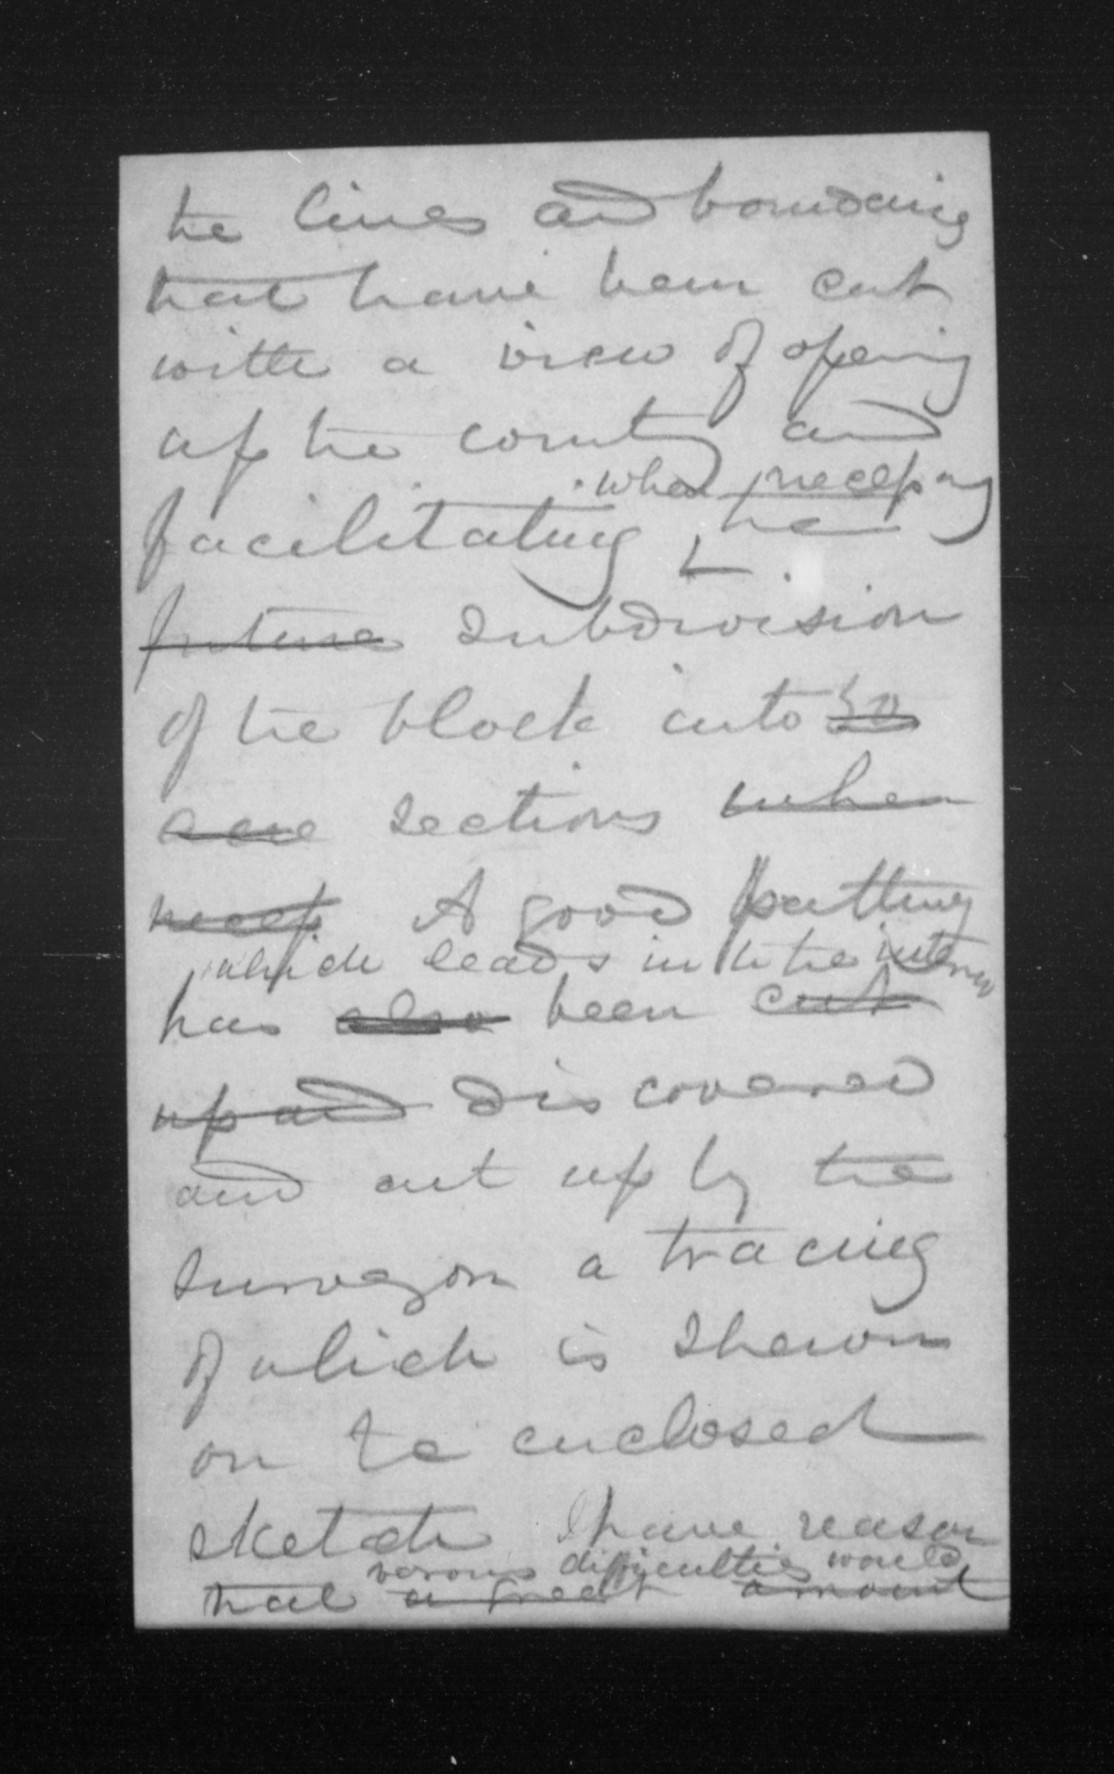 the lines and boundaries
that have been cut
with a view of opening
up the country and
when necessary
facilitating the
future subdivision
of the block into 50
acre sections when
A good
which leads into the interior
has also been cut
up and discovered
and cut up by the
surveyor a tracing
of which is shewn
on the enclosed
sketch I have reason
various difficulties would
that a great amount